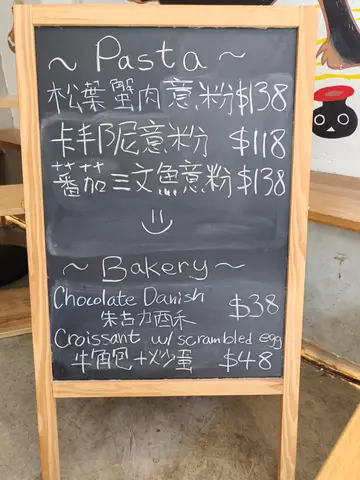 ~ Pasta ~
松葉蟹肉意粉$138
卡邦尼意粉 $118
蕃茄三文魚意粉$138
~ Bakery ~
Chocolate Danish $38
朱古力酉禾
Croissant w/ scrambled egg
牛角包+炒蛋 $48